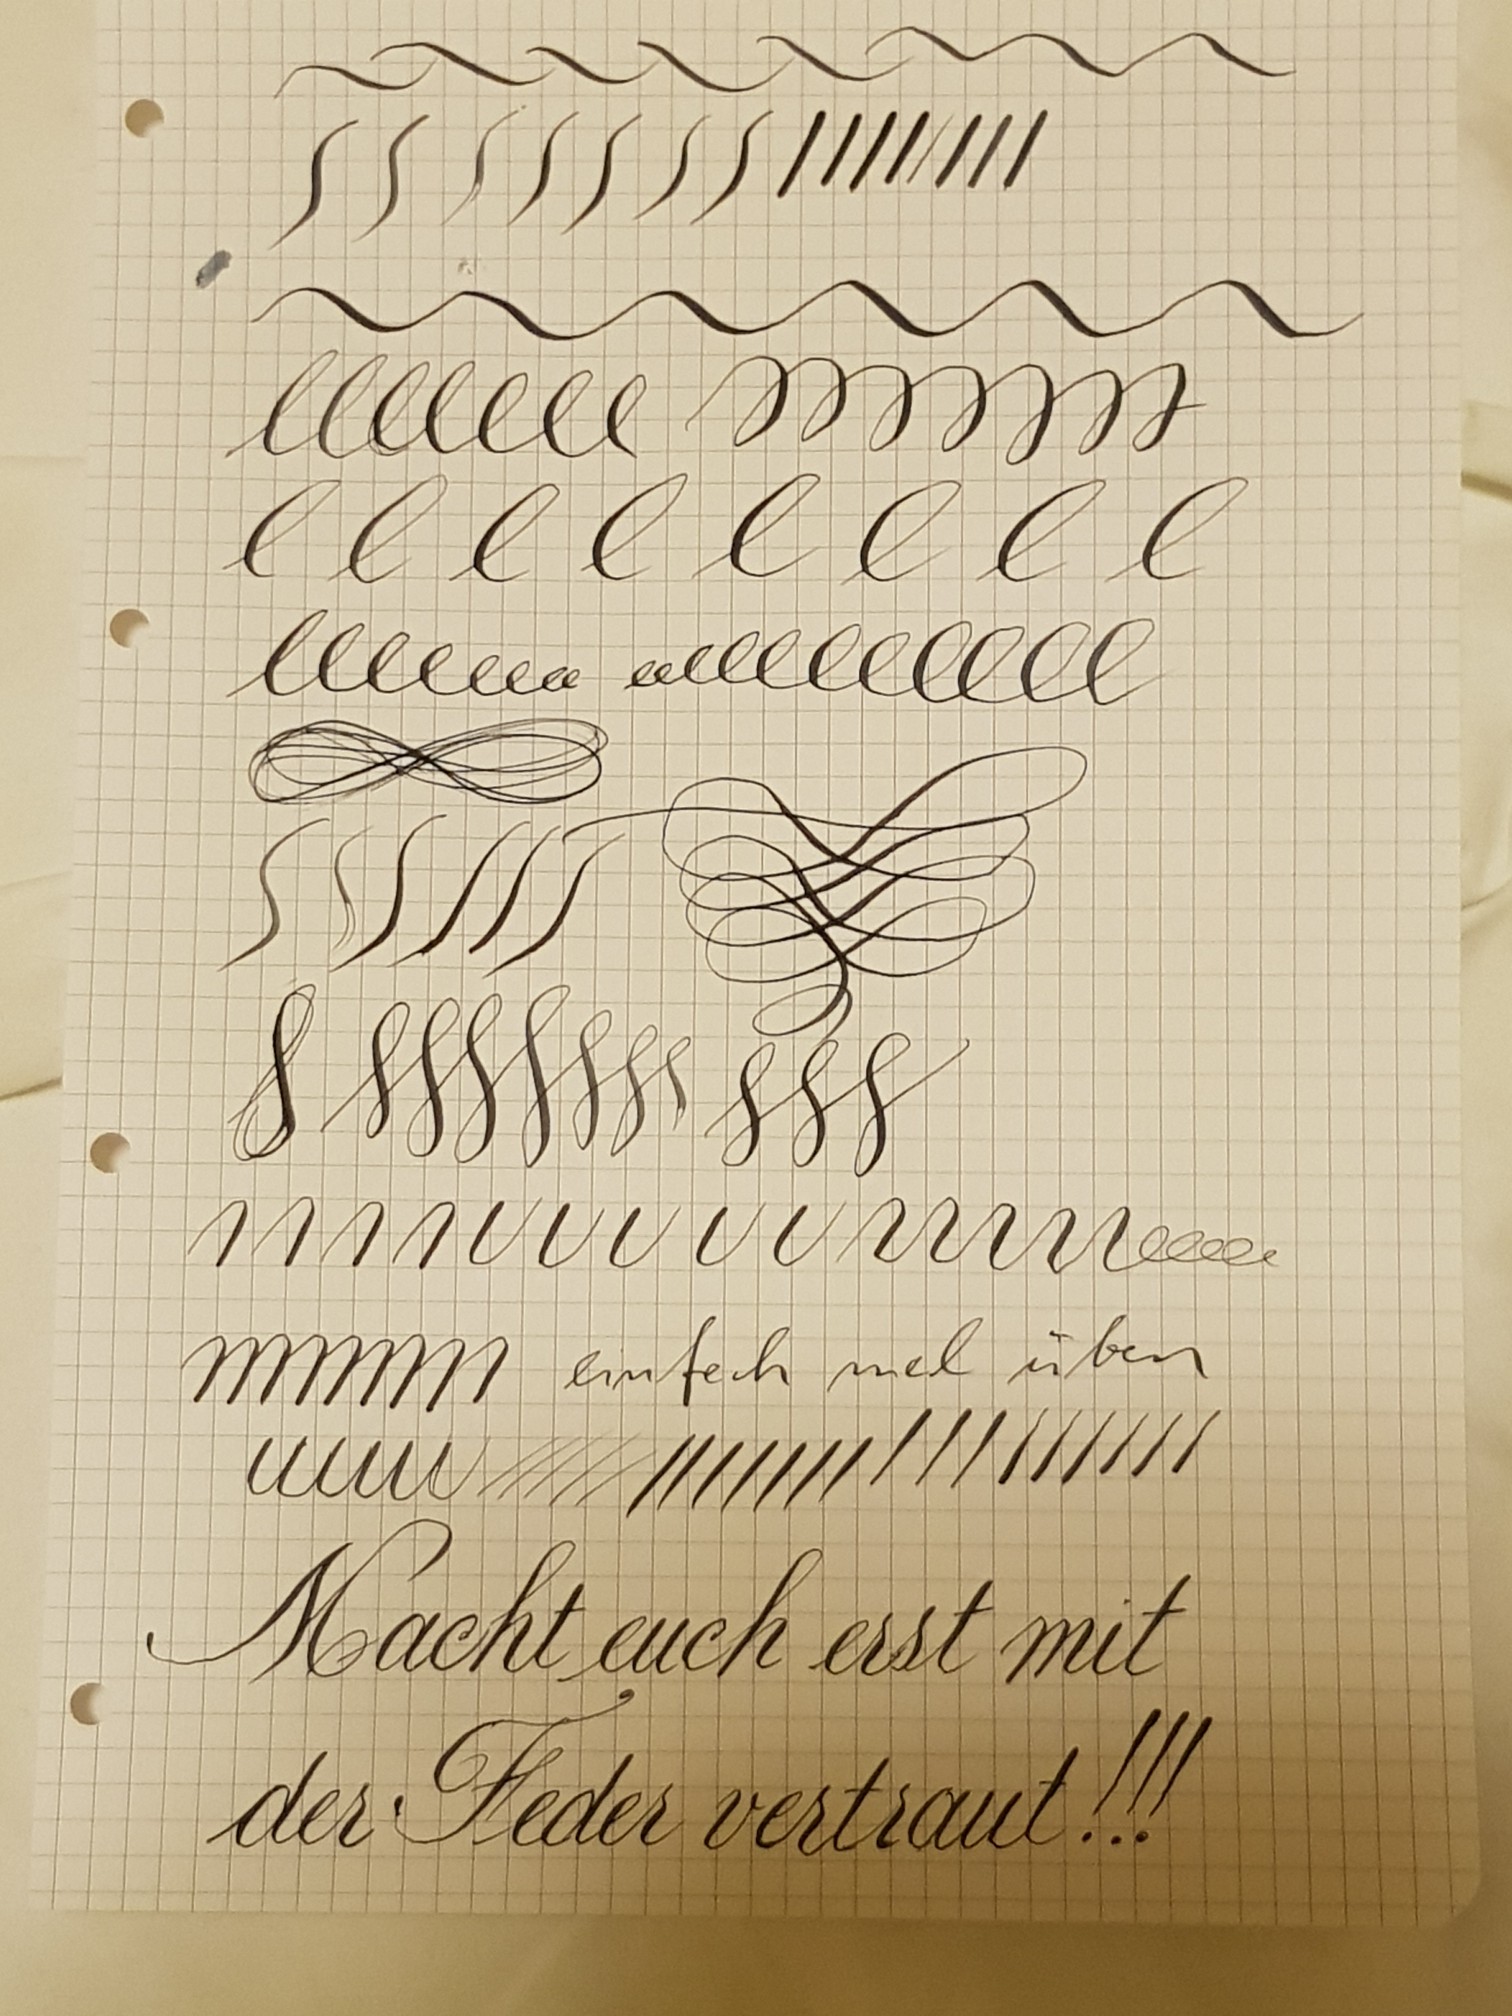 einfach mal üben
Macht euch erst mit
der Feder vertraut!!!